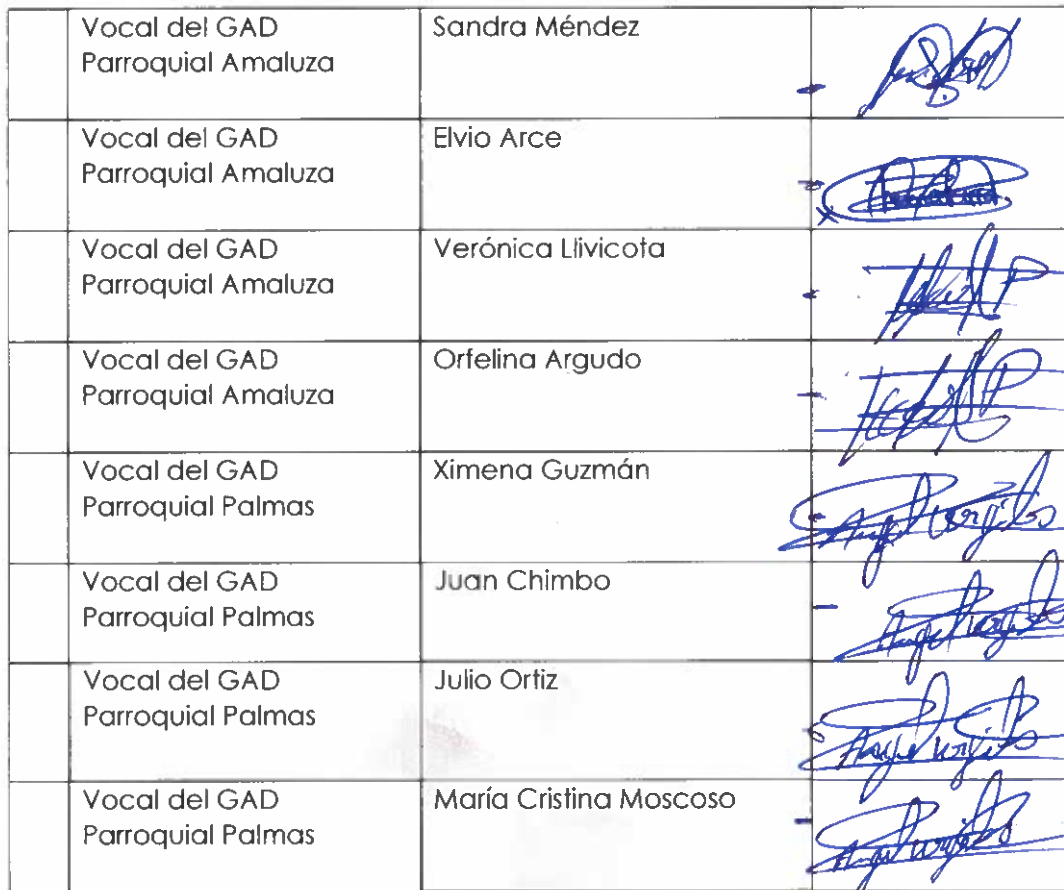 Vocal del GAD
Parroquial Amaluza
Sandra Méndez
Vocal del GAD
Parroquial Amaluza
Elvio Arce
Vocal del GAD
Parroquial Amaluza
Verónica Llivicota
Vocal del GAD
Parroquial Amaluza
Orfelina Argudo
Vocal del GAD
Parroquial Palmas
Ximena Guzmán
Vocal del GAD
Parroquial Palmas
Juan Chimbo
Vocal del GAD
Parroquial Palmas
Julio Ortiz
Vocal del GAD
Parroquial Palmas
María Cristina Moscoso